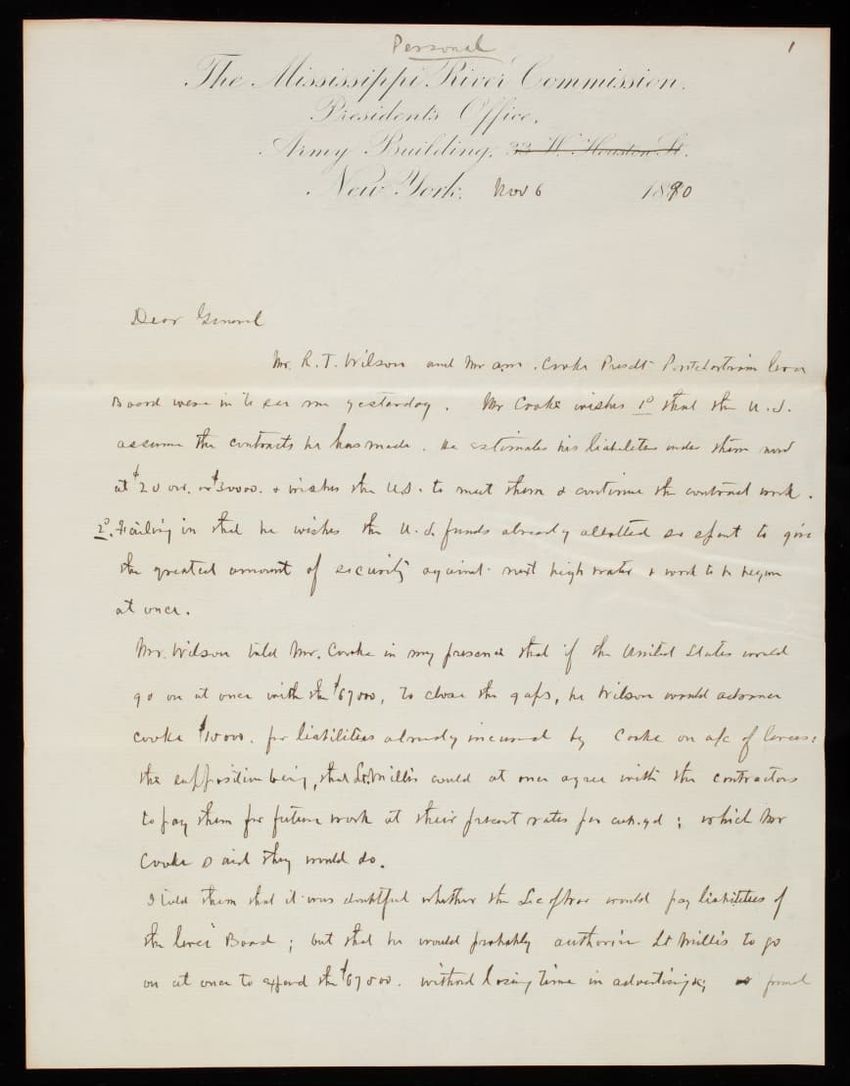 Personal
1
The Mississippi River Commission.
President's Office,
Army Building, 33 W. Houston St.
New York, Nov 6 1890
Dear General
Mr. R. T. Wilson and Mr Cooke Presdt Pontchartrain levee
Board were in to see me yesterday. Mr Cooke wishes 1º that the U.S.
assume the contracts he has made. He estimates his liabilities under them now
at $20 000. or $30000. & wishes the U.S. to meet them & continue the contract work.
2º. Failing in that he wishes the U.S. funds already allotted so spent to give
the greatest amount of security against next high water & work to be begun
at once.
Mr. Wilson told Mr. Cooke in my presence that if the United States would
go on at once with the $67000, to close the gaps, he Wilson would advance
Cooke $10000. for liabilities already incurred by Cooke on a/c of levees:
the supposition being, that Lt. Millis could at once agree with the contractors
to pay them for future work at their present rates per cub. yd; which Mr
Cooke said they would do.
I told them that it was doubtful whether the Sec of War would pay liabilities of
the levee Board; but that he would probably authorize Lt Millis to go
on at once to expend the $67000. without losing time in advertising &c;